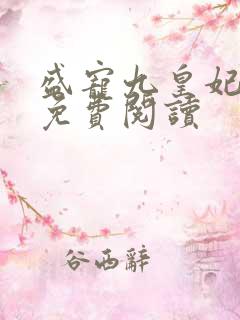 盛寵九皇妃
免費閱讀
谷西辭